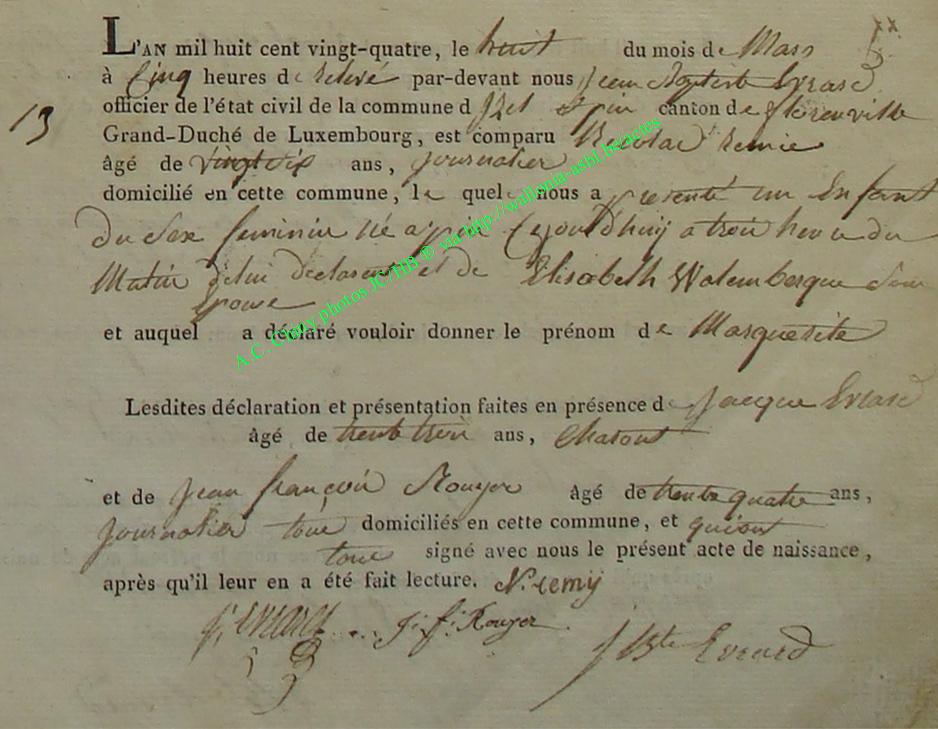 L'AN mil huit cent vingt-quatre, le huit du mois de Mars
à Cinq heures de relevé par-devant nous Jean Baptiste Evrard
13 officier de l'état civil de la commune d'Izel canton de florenville
Grand-Duché de Luxembourg, est comparu Nicolas remie
âgé de vingt six ans, Journalier
domicilié en cette commune, le quel nous a presenté un Enfant
du Sex feminin né a ce jourd'huij a trois heure du
Matin delui declarant et de Elisabeth Walemberque Son
Epouse
et auquel a déclaré vouloir donner le prénom de Marguerite
Lesdites déclaration et présentation faites en présence de Jacque Evrard
âgé de trente trois ans, Charon
et de Jean françois Rouyer âgé de trente quatre ans,
Journalier tous domiciliés en cette commune, et qui ont
tous signé avec nous le présent acte de naissance,
après qu'il leur en a été fait lecture. N. remy
J. Evrard J. f. Rouyer
J Bte Evrard
A.C. Chiny photos JC/HB ® via http://wallonia-asbl.be/actes